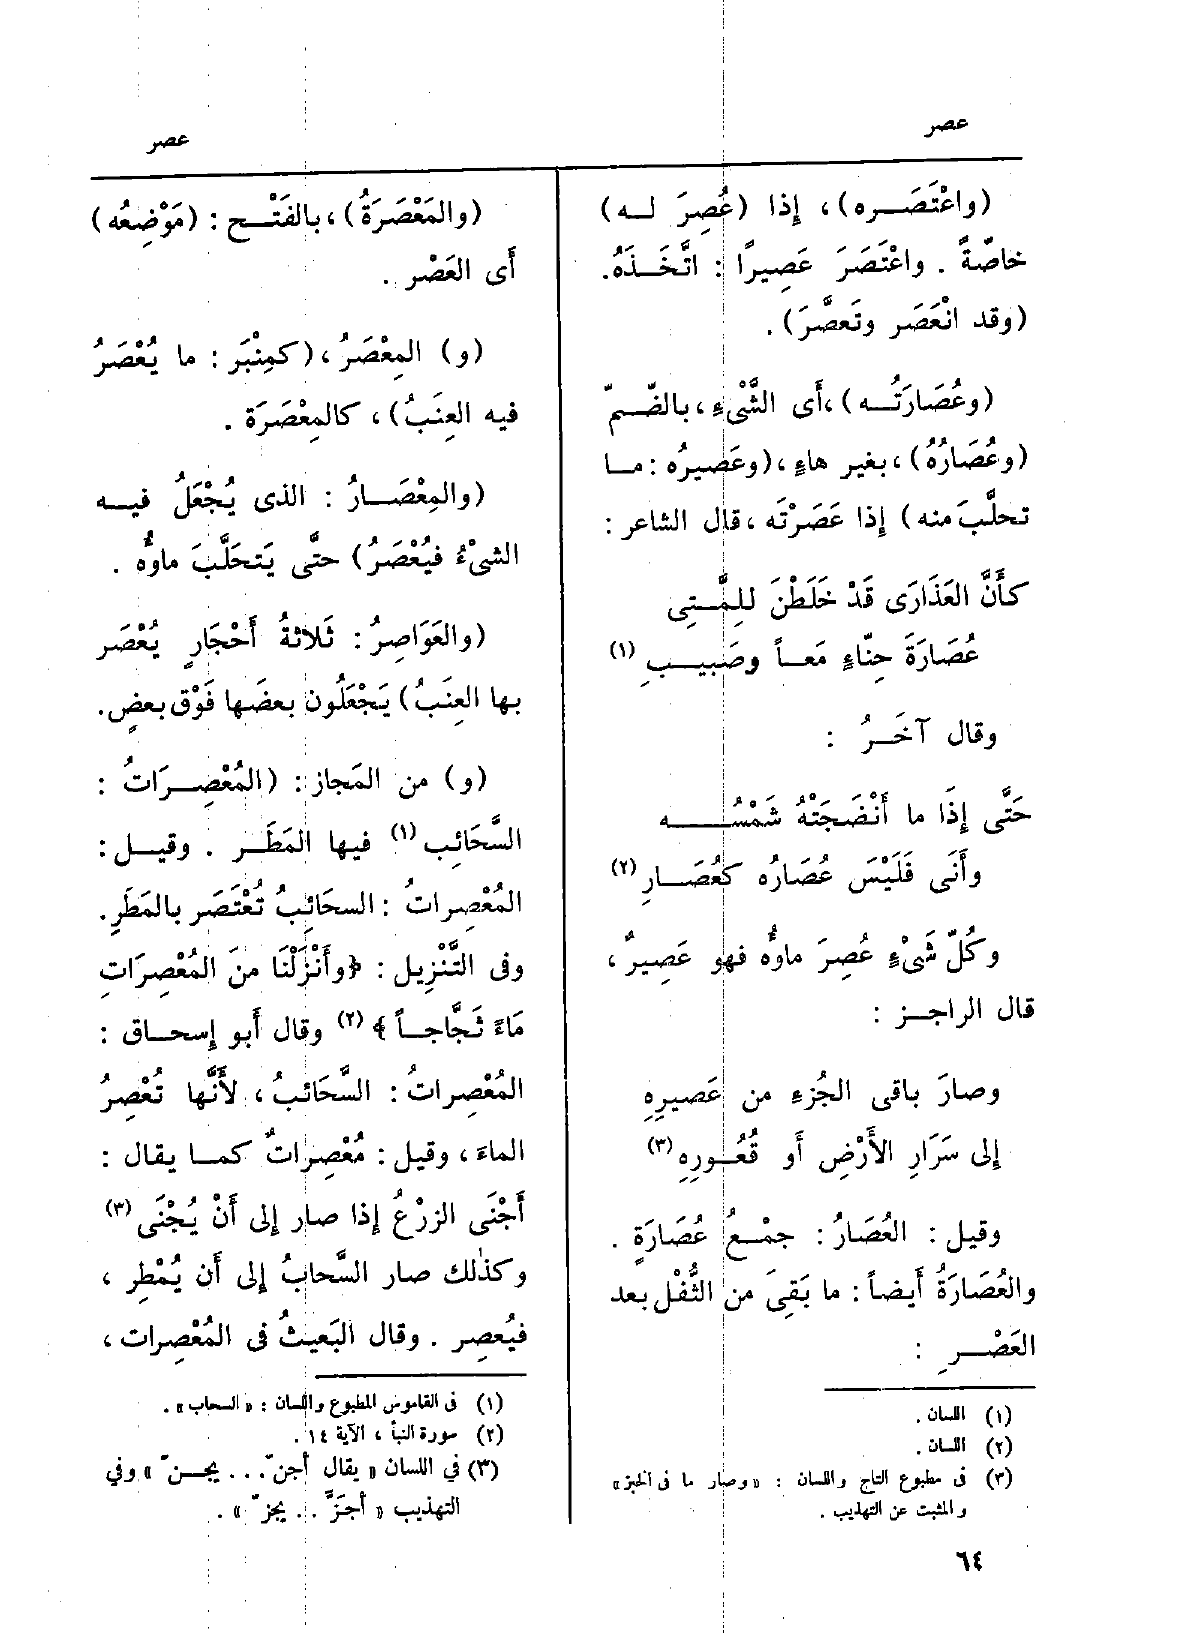 عصر
عصر
(واعْتَصَره)، إذا (عُصِرَ لــه)
خاصّةً . واعْتَصَرَ عَصِيرًا : اتَّخَــذَهُ.
(وقد انْعَصَر وتَعصَّرَ) .
(وعُصَارَتُــه)،أَى الشَّىْءِ،بالضّــمّ
(وعُصَارُهُ)،بغير هاءٍ،(وعَصِيرُه :مــا
تحلَّبَ منه) إذا عَصَرْتَه ،قال الشاعر :
كأَنَّ العَذَارَى قَدْ خَلَطْنَ لِلِمَّــتِى
عُصَارَةَ حِنّاءٍ مَعــاً وصَبِيــبِ (١)
وقال آخَــرُ :
حَتَّى إِذَا ما أَنْضَجَتْهُ شَمْسُــــه
وأَنَى فَلَيْسَ عُصَارُه كعُصَــارِ (٢)
وكُلّ شَىْءٍ عُصِرَ ماوُه فهو عَصِيرٌ ،
قال الراجــز :
وصارَ باقى الجُزءِ من عَصيرِهِ
إلى سَرَارِ الأَرْضِ أَو قُعُــورِهِ (٣)
وقيل : العُصَارُ : جمْــعُ عُصَارَةٍ .
والعُصَارَةُ أَيضاً : ما بَقِىَ من الثُّفْل بعد
العَصْــرِ :
(١) اللسان .
(٢) اللسان .
(٣) فى مطبوع التاج واللسان : « وصار ما فى الخبز »
والمثبت عن التهذيب .
(والمَعْصَرَةُ)،بالفَتْــح : (مَوْضِعُه)
أَى العَصْر .
(و) المِعْصَرُ،(كمِنْبَر : ما يُعْصَرُ
فيه العِنَبُ) ، كالمِعْصَرَة .
(والمِعْصَــارُ : الذى يُجْعَلُ فيــه
الشىْءُ فيُعْصَرُ) حتَّى يَتحَلَّبَ ماوُه .
(والعَوَاصِرُ : ثَلاثةُ أَحْجَارٍ يُعْصَر
بها العِنَبُ) يَجْعَلُون بعضَها فَوْق بعضٍ.
(و) من المَجاز : (المُعْصِــرَاتُ :
السَّحَائِب (١) فيها المَطَــر . وقيــل :
المُعْصِراتُ : السحَائِبُ تُعْتَصَر بالمَطَرِ.
وفى التَّنْزِيل : ﴿وأَنْزَلْنَا منَ المُعْصِرَاتِ
مَاءً ثَجَّاجــاً ﴾ (٢) وقال أَبو إسحــاق :
المُعْصِراتُ : السَّحَائبُ ، لأَنَّها تُعْصِرُ
الماءَ ، وقيل : مُعْصِراتٌ كمــا يقال :
أَجْنَى الزرْعُ إذا صار إلى أَنْ يُجْنَى (٣)
وكذٰلك صار السَّحابُ إلى أَن يُمْطِر ،
فيُعصِر . وقال البَعيثُ فى المُعْصِرات ،
(١) فى القاموس المطبوع واللسان : « السحاب » .
(٢) سورة النبأ ، الآية ١٤ .
(٣) في اللسان « يقال أجنّ . . . يجــنّ » وفي
التهذيب « أجَزَّ . . . يجزّ » .
٦٤